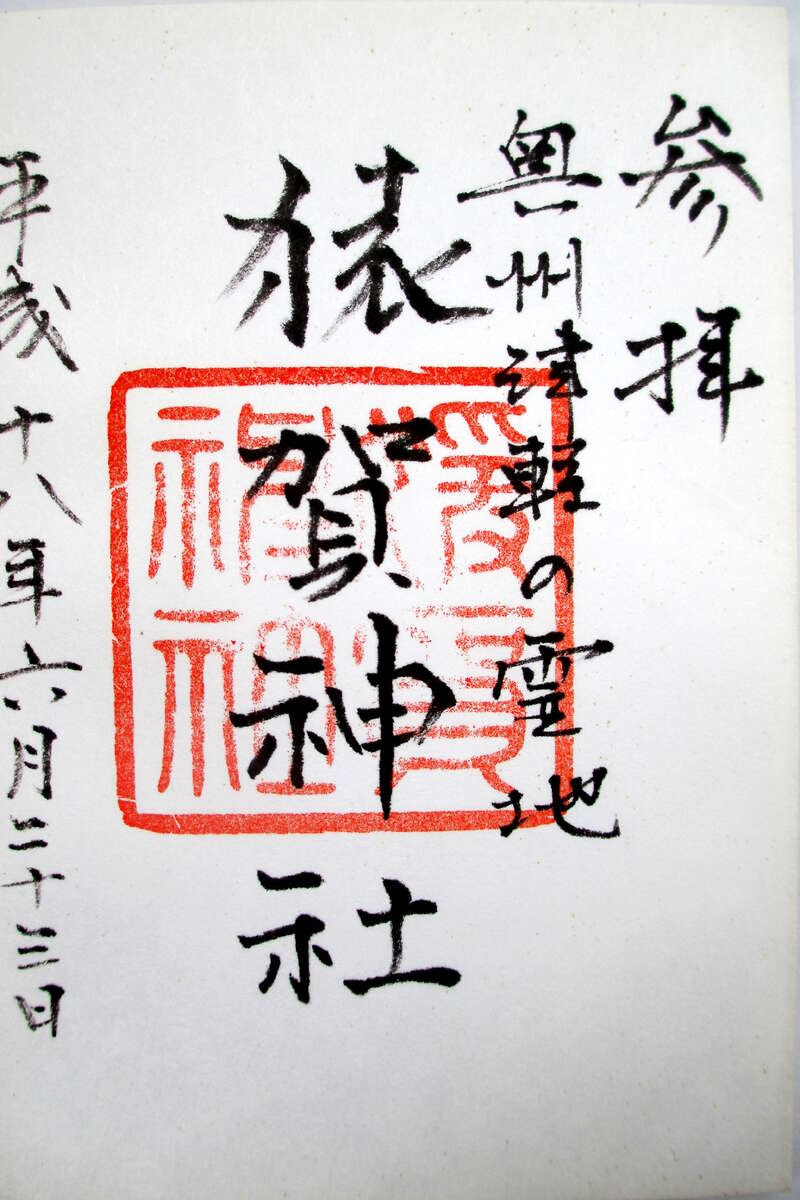 参拝
奥州津軽の霊地
猿賀神社
猿賀神社
平成十八年六月二十三日